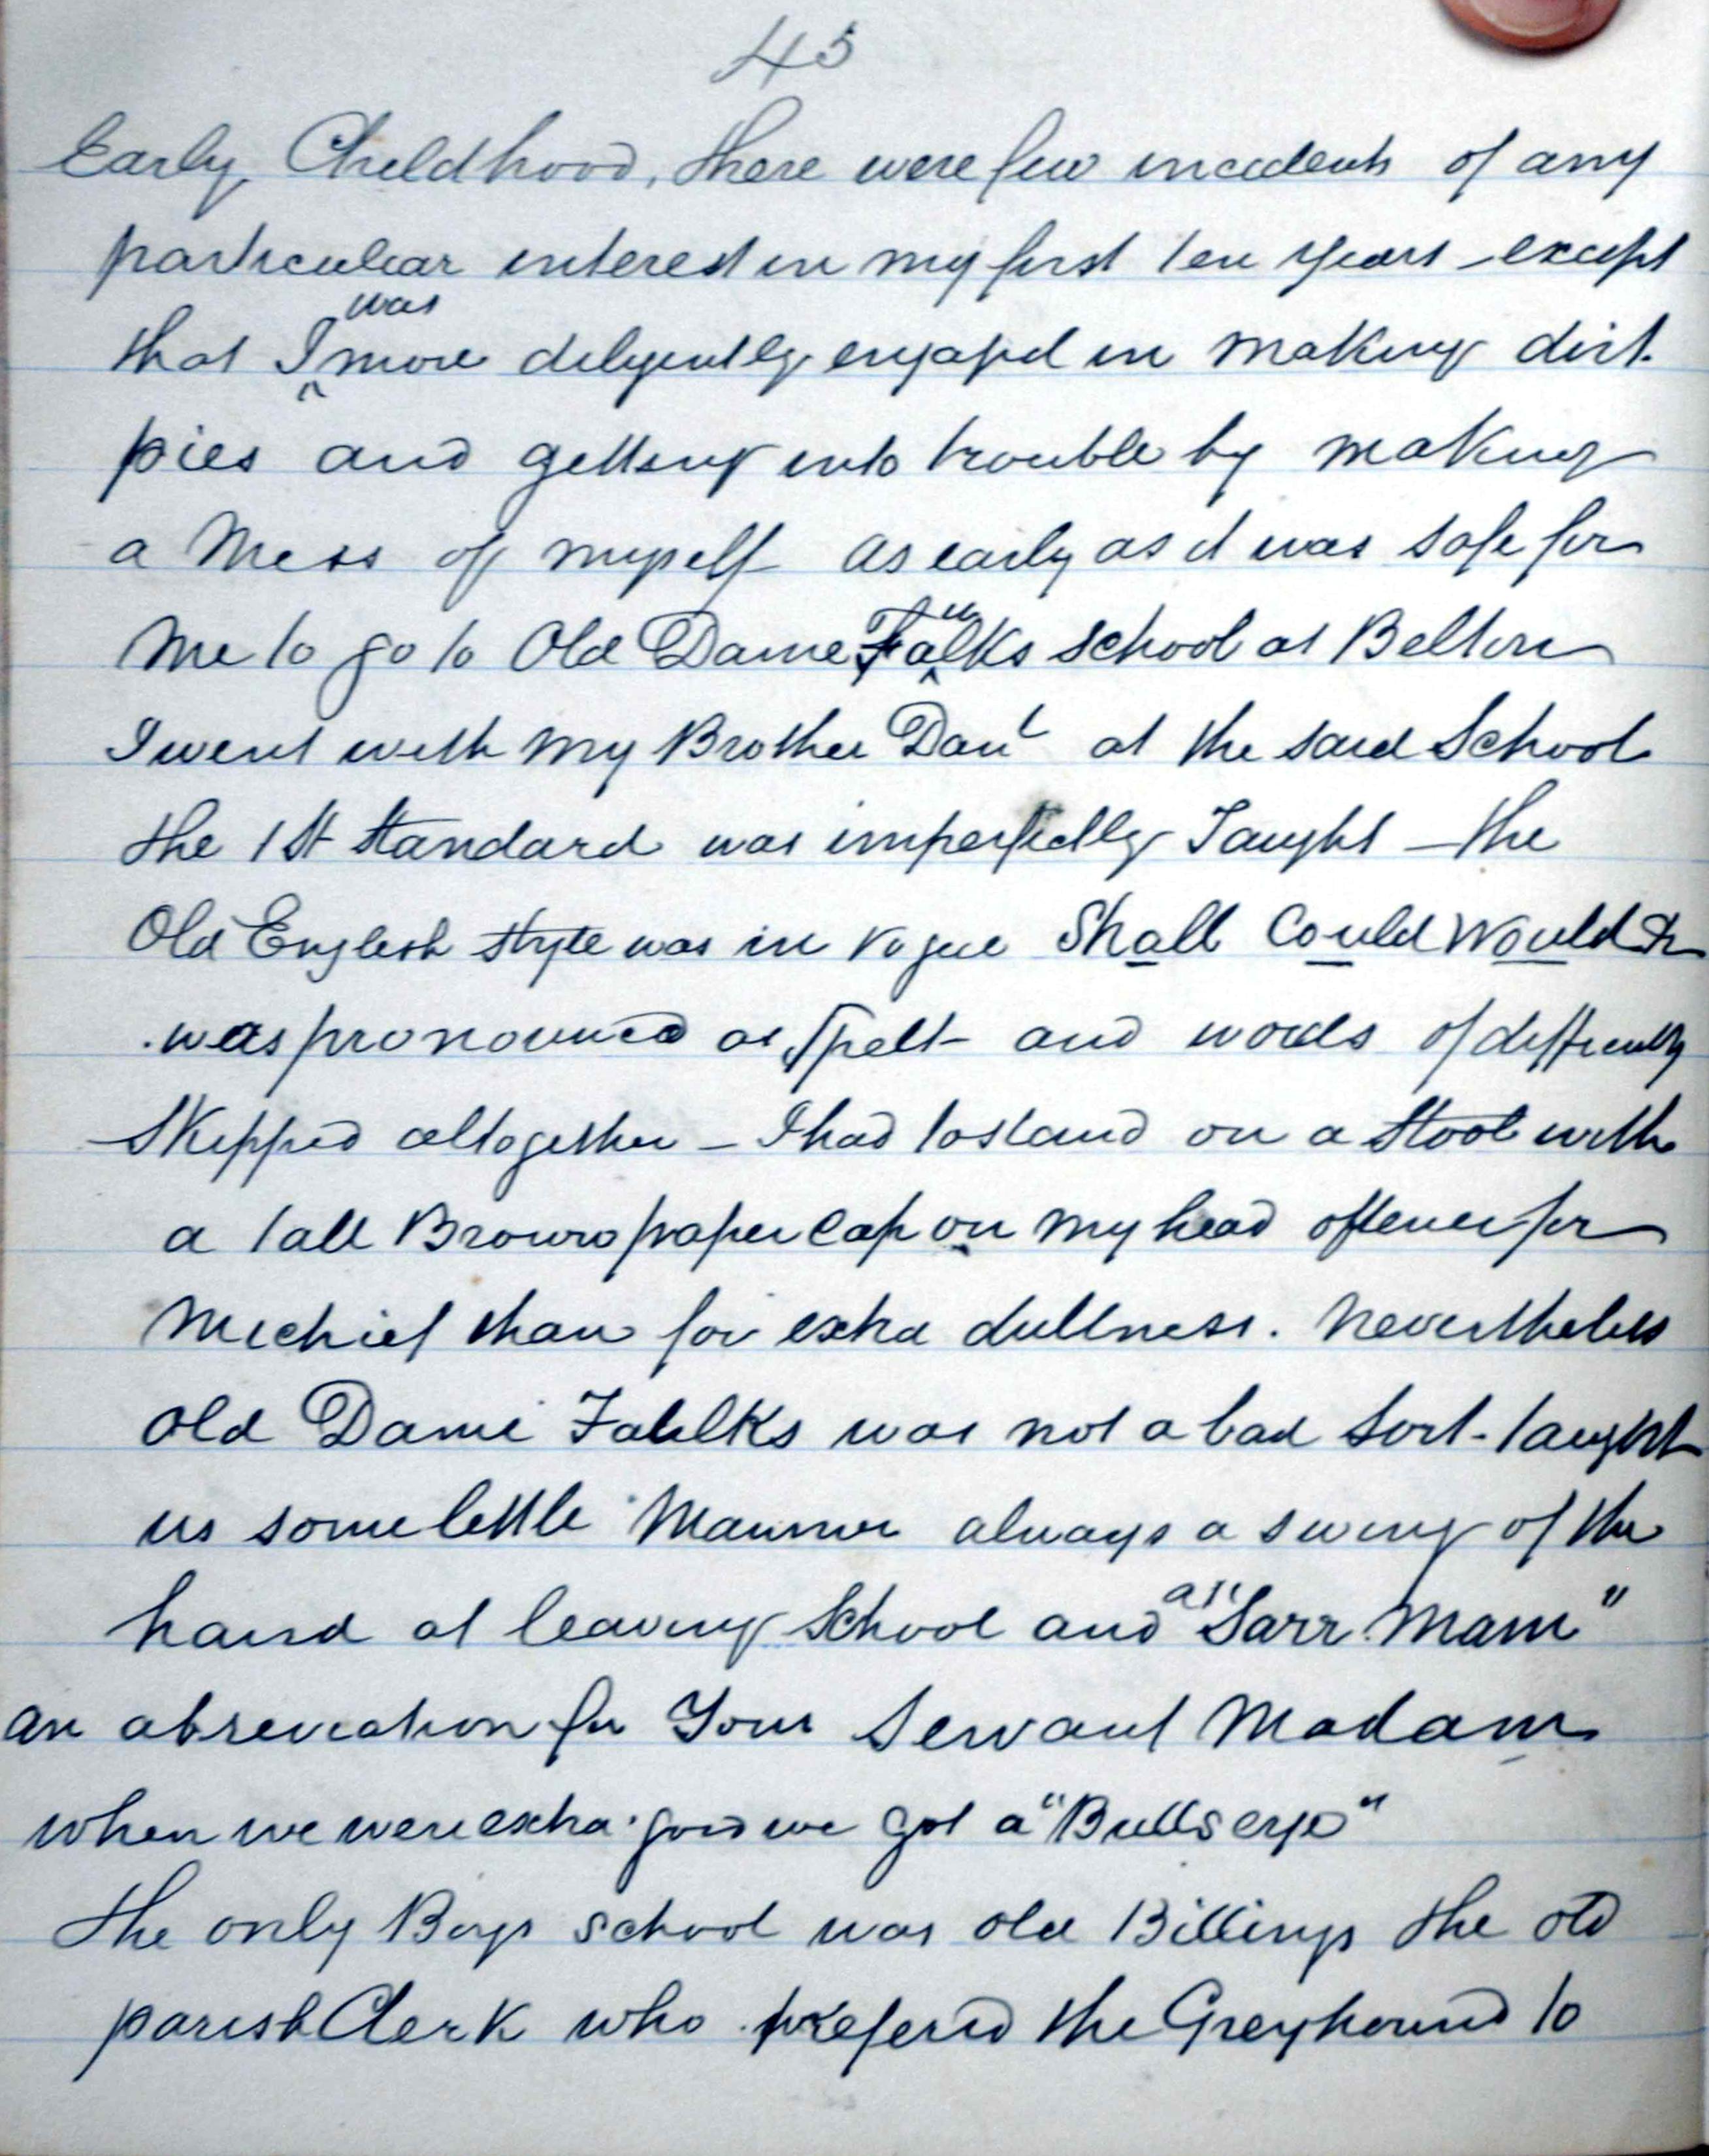 45
Early Childhood, there were few incidents of any
particular interest in my first ten years - except
that I was more diligently engaged in making dirt
pies and getting into trouble by making
a Mess of myself as early as it was safe for
Me to go to Old Dame Faulks school at Belton
I went with my Brother Danl at the said School
the 1st Standard was imperfectly Taught - the
Old English style was in vogue Shall Could Would &c
was pronounced as Spelt - and words of difficulty
Skipped altogether - I had to stand on a Stool with
a tall Brown paper Cap on my head oftener for
Mischief than for extra dullness. Nevertheless
old Dame Faulks was not a bad sort - taught
us some little Manner always a swing of the
hand at leaving School and a "Sarr Mam"
an abreviation for Your Servant Madam
when we were extra good we got a "Bulls eye"
the only Boys school was old Billings the old
parish Clerk who prefered the Greyhound to